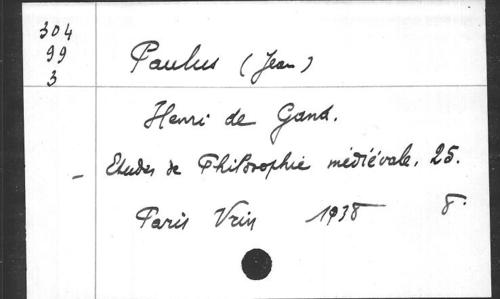 304
99
3
Paulus (Jean)
Henri de Gand.
- Etudes de Philosophie médiévale. 25.
Paris Vrin 1938 8.